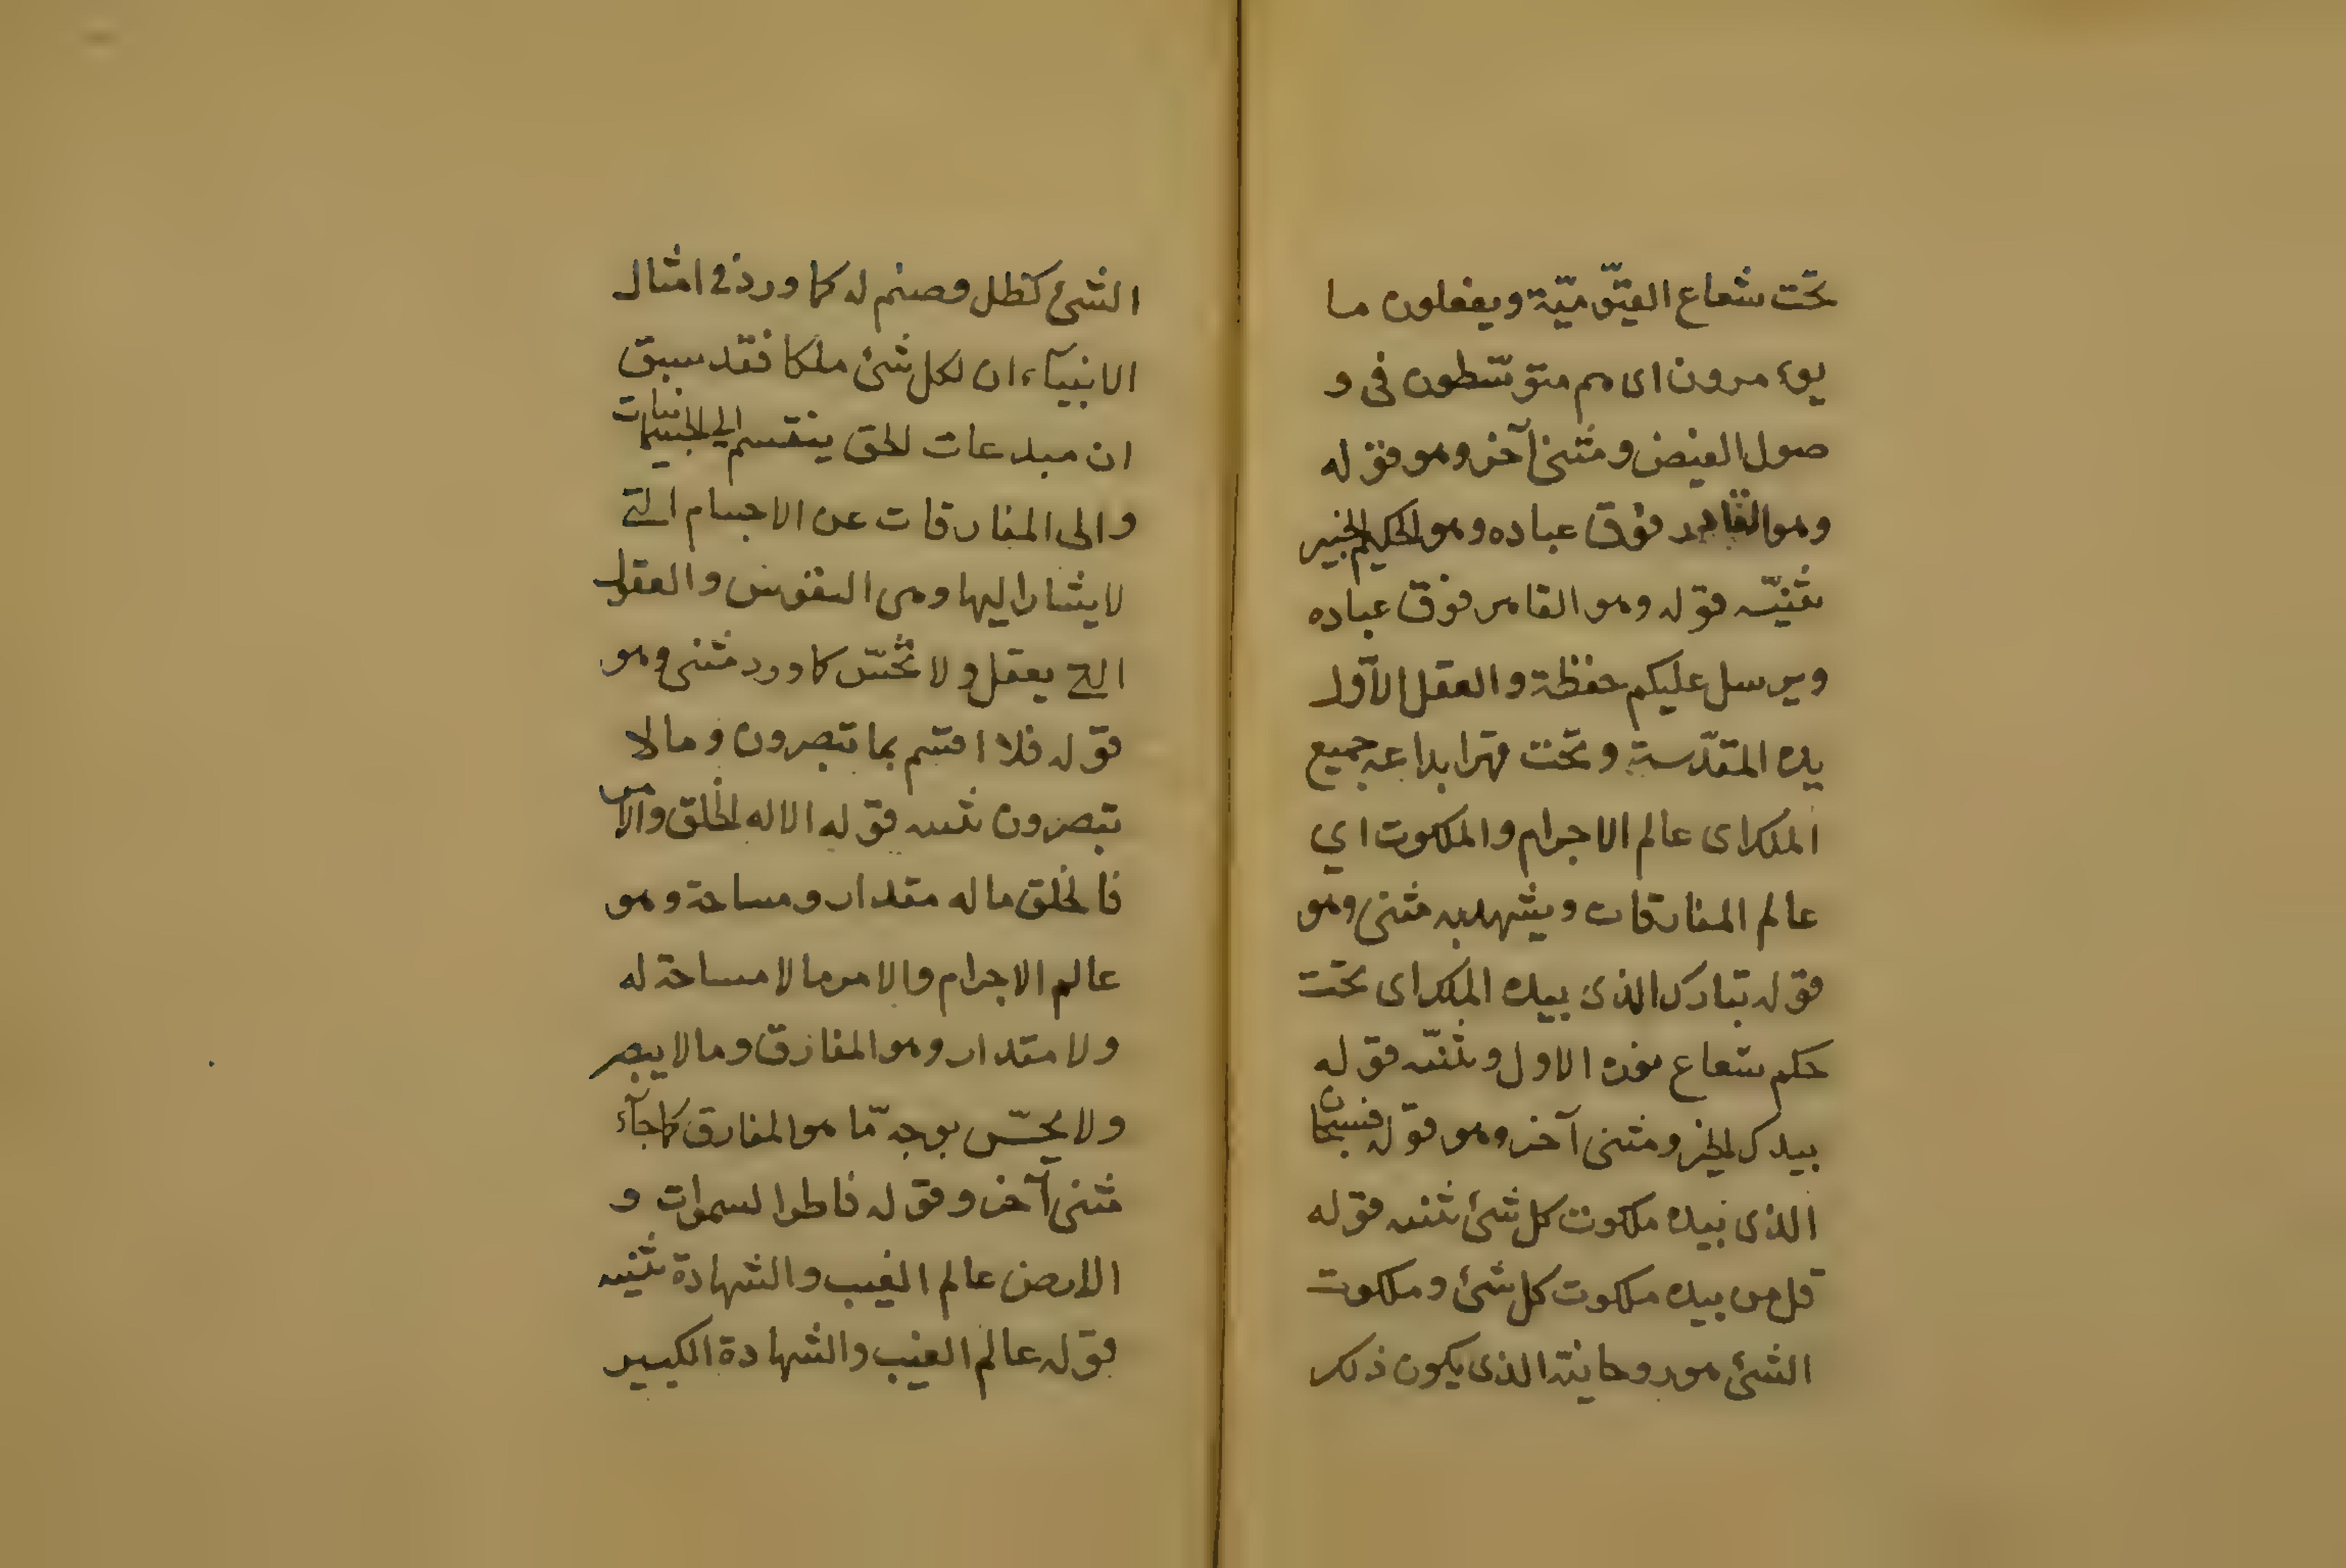 تحت شعاع القيّوميّة ويفعلون ما
يوء مرون اى هم متوسّطون فى و
صول الفيض ومثنى آخر وهو قوله
وهو القاهر فوق عباده وهو الحكيم الخبير
تثنيّه قوله وهو القاهر فوق عباده
ويرسل عليكم حفظة والعقل الاوّل
يده المقدّسة وتحت قهر ابداعه جميع
الملك اى عالم الاجرام والملكوت اي
عالم المفارقات ويشهد به مثنى وهو
قوله تبارك الذى بيده الملك اى تحت
حكم شعاع نوره الاول وتثنيّه قوله
بيدك الخير ومثنى آخر وهو قوله فسبحان
الذى بيده ملكوت كل شئ تثنيه قوله
قل من بيده ملكوت كل شئ وملكوت
الشئ هو روحانيته الذى يكون ذلك
الشئ كظل وصنم له كما ورد فى امثال
الانبيآء ان لكل شئ ملكا فقد سبق
ان مبدعات الحق ينقسم الى الجسمانيات
والى المفارقات عن الاجسام التى
لا يشار اليها وهى النفوس والعقول
التى يعقل ولا تحسّ كما ورد مثنى وهو
قوله فلا اقسم بما تبصرون وما لا
تبصرون تثنيه قوله الا له الخلق والامر
فالخلق ما له مقدار ومساحة وهو
عالم الاجرام والامر ما لا مساحة له
ولا مقدار وهو المفارق وما لا يبصر
ولا يحسّ بوجه مّا هو المفارق كما جآء
مثنى آخر وقوله فاطر السموات و
الارض عالم الغيب والشهادة تثنيه
قوله عالم الغيب والشهادة الكبير